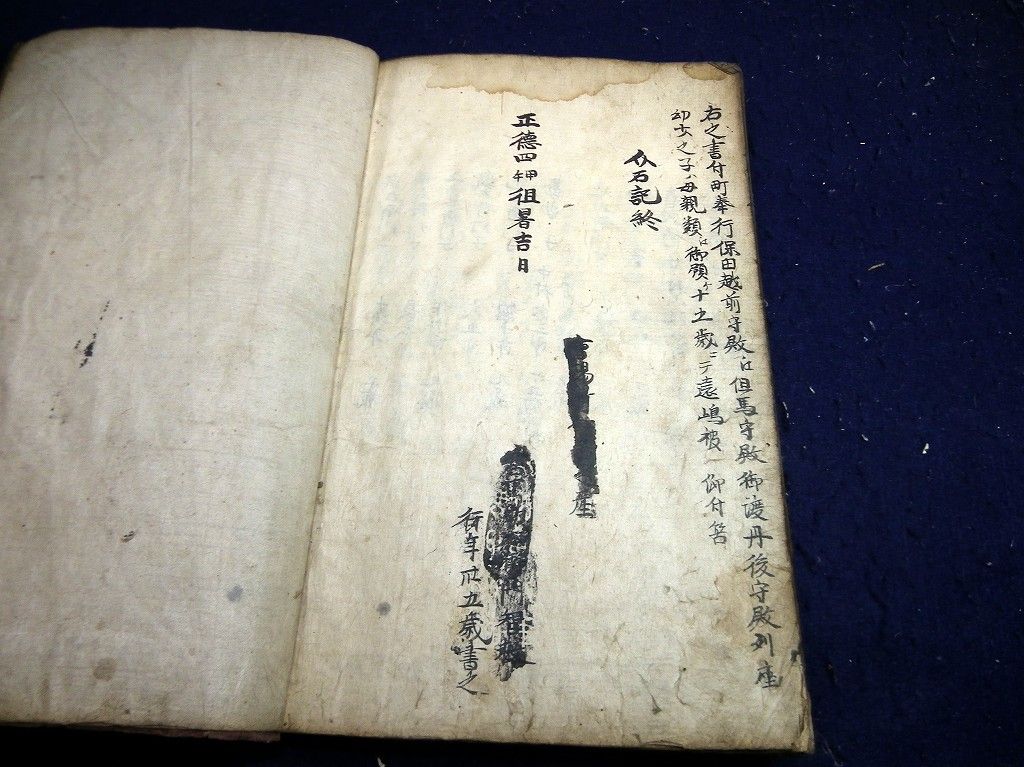 右之書付町奉行保田越前守殿江但馬守殿御渡丹後守殿列座
幼少之子ハ母親類江御預ケ十五歳ニテ遠嶋被 仰付筈
介石記終
正徳四甲午徂暑吉日
座
行年卅五歳書之